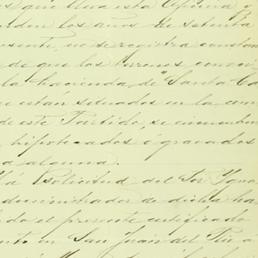 que lleva esta Oficina y
los años de setenta
presente, no se registra constan
de que los terrenos conoci
la hacienda de "Santa Ca
que están situados en la com
de este Partido, se encuentren
hipotecados ó gravados
a alguna.
Á Solicitud del Sor Ygna
administrador de dicha ha
do el presente certificado
en San Juan del Rio a